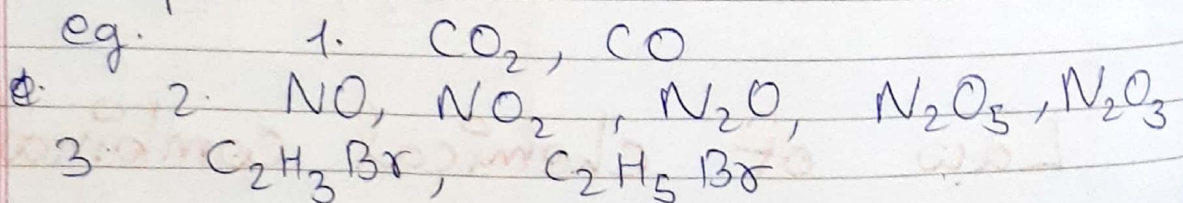 eg. 1. CO₂, CO
2. NO, NO₂, N₂O, N₂O₅, N₂O₃
3. C₂H₃Br, C₂H₅Br